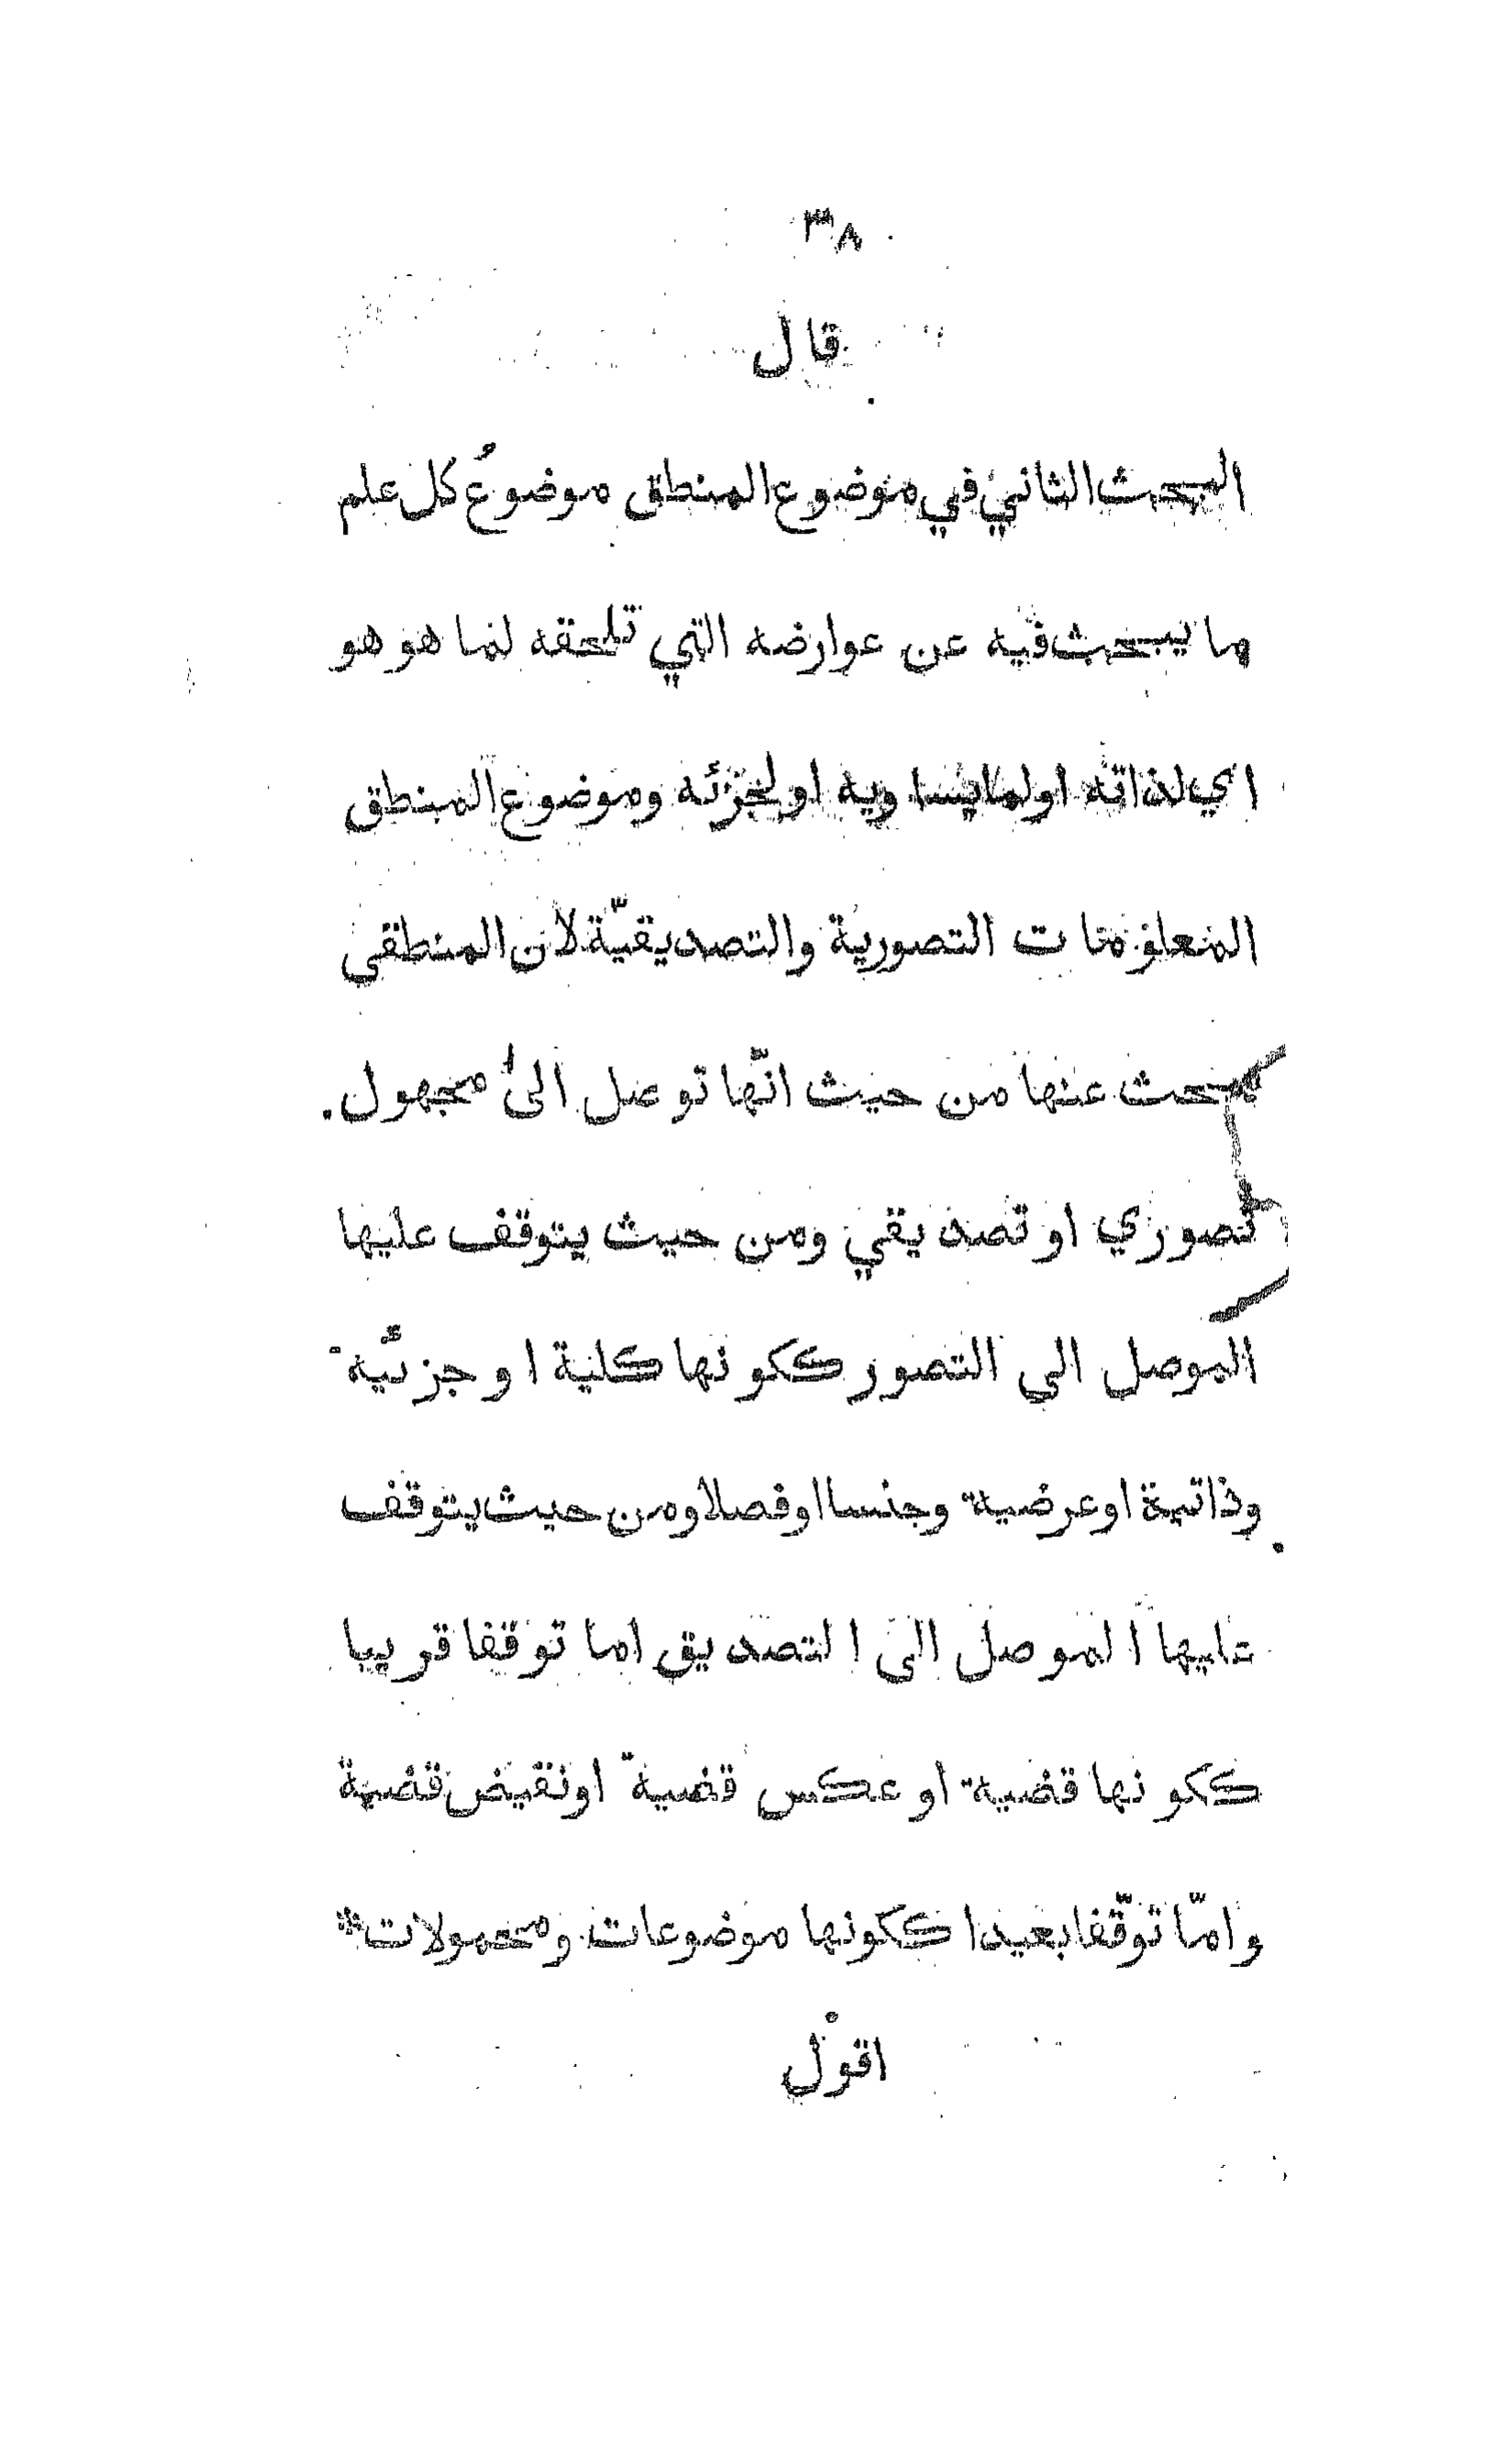 ٣٨
قال
البحث الثاني في موضوع المنطق موضوعُ كل علم
ما يبحث فيه عن عوارضه التي تلحقه لما هو هو
اي لذاته او لما يساويه او لجزئه وموضوع المنطق
المعلومات التصورية والتصديقيّة لان المنطقي
يبحث عنها من حيث انّها توصل الىُ مجهول.
تصوري او تصديقي ومن حيث يتوقف عليها
الموصل الى التصور ككونها كلية او جزئية
وذاتية او عرضية وجنسا او فصلا ومن حيث يتوقف
عليها الموصل الى التصديق اما توقفا قريبا
ككونها قضية او عكس قضية او نقيض قضية
وامّا توقّفا بعيدا ككونها موضوعات ومحمولات *
اقول